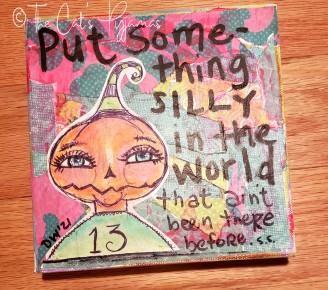 © The Cat's Pyjamas
Put some-
thing
SILLY
in the
world
that ain't
been there
before. s.s.
13